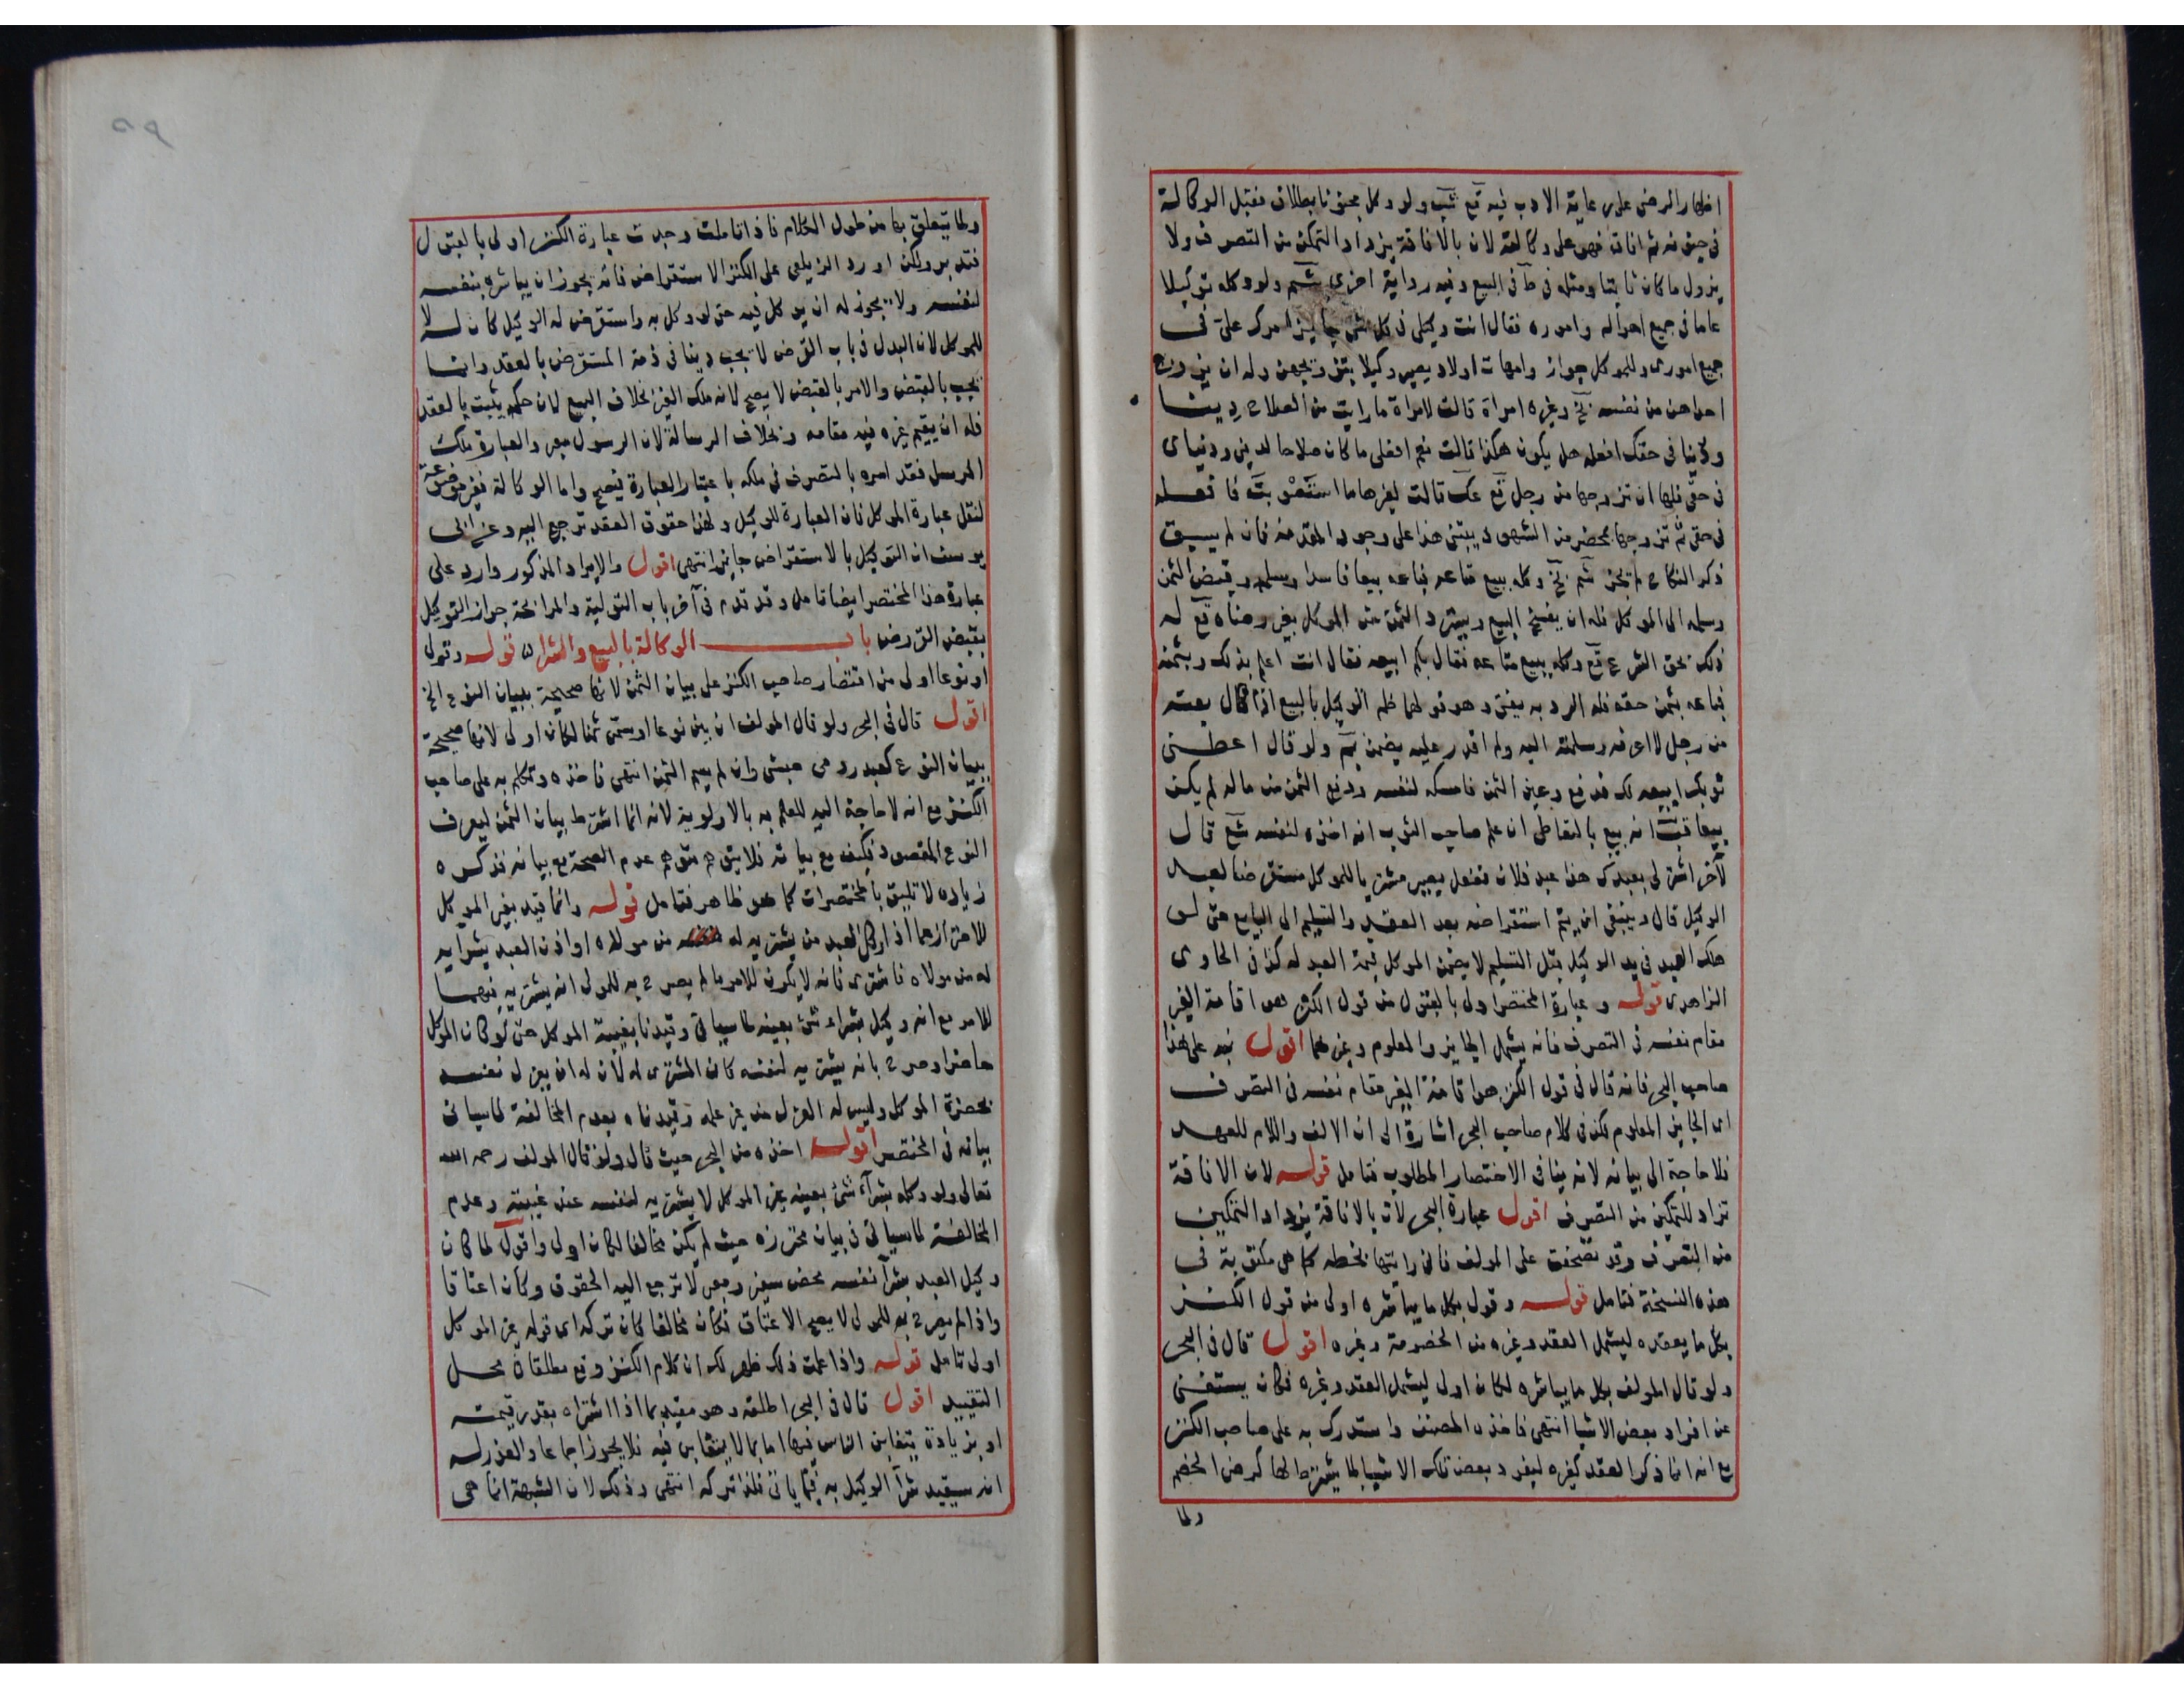 اظهار الرضى على رعاية الادب فيه قع شب ولو وكل مجنونا بطلاق فقبل الوكالة
في جنونه ثم افاق فهو على وكالته لان بالافاقة يزداد التمكن من التصرف ولا
يزول ما كان ثابتا ومثله في ط في البيع وفيه رواية اخرى شم ولو وكله توكيلا
عاما في جميع اموره فقال انت وكيلى في كل شى جايز امرك على في
جميع امورى وللموكل جوار وامهات اولاد يصير وكيلا بتزويجهن وله ان يزوج
احداهن من نفسه نخ وغيره امراة قالت لامراة ما رايت من الصلاح دينا
ودنيا في حقك افعله هل يكون هكذا قالت نعم افعلى ما كان صلاحا لدينى ودنياى
في حقى فلها ان تزوجها من رجل قع عك قالت لغيرها ما استصوبت فافعله
في حقى ثم تزوجها بمحضر من الشهود يبتنى هذا على وجود المقدمة فان لم يسبق
ذكر النكاح لم يجز شم نخ وكله ببيع متاعه فباعه بيعا فاسدا وسلمه وقبض الثمن
وسلمه الى الموكل فله ان يفسخ البيع ويسترد الثمن من الموكل بغير رضاه قع له
ذلك بحق الشرع قع وكله ببيع متاعه فقال بكم ابيعه فقال انت اعلم بذلك وبثمنه
فباعه بثمن حقه فله الرد به يفتى وهو قولهما ظم الوكيل بالبيع اذا قال بعته
من رجل لا اعرفه وسلمته اليه ولم اقدر عليه يضمن بم ولو قال اعطنى
ثوبك ابيعه لك فدفع وعين الثمن فامسكه لنفسه ودفع الثمن من ماله لم يكن
بيعا قب انه بيع بالتعاطى ان علم صاحب الثوب انه اخذه لنفسه شع قال
لآخر اشتر لى بعبدك هذا عبد فلان ففعل يصير مشتريا للموكل مستقرضا لعبد
الوكيل قال وينبغى ان يتم استقراضه بعد العقد والتسليم الى البايع حتى لو
هلك العبد في يد الوكيل قبل التسليم لا يضمن الموكل قيمة العبد له كذا في الحاوى
الزاهدى قوله وعبارة المختصر اولى بالقبول من قول الكنز هو اقامة الغير
مقام نفسه في التصرف فانه يشمل الجايز والمعلوم وغيرهما اقول نبه على هذا
صاحب البحر فانه قال في قول الكنز هو اقامة الغير مقام نفسه في التصرف
اى الجايز المعلوم لكن في كلام صاحب البحر اشارة الى ان الالف واللام للعهد
فلا حاجة الى بيانه لانه ينافى الاختصار المطلوب فتامل قوله لان الافاقة
تزاد للتمكين من التصرف اقول عبارة البحر لان بالافاقة يزداد التمكين
من التصرف وقد تصحفت على المولف فانى رايتها بخطه كما هى مكتوبة في
هذه النسخة فتامل قوله وقول بكل ما يباشره اولى من قول الكنز
بكل ما يعقده ليشمل العقد وغيره من الخصومة وغيره اقول قال في البحر
ولو قال المولف بكل ما يباشره لكان اولى ليشمل العقد وغيره فكان يستغنى
عن افراد بعض الاشيا انتهى فاخذه المصنف واستدرك به على صاحب الكنز
مع انه انما ذكر العقد كغيره ليفرد بعض تلك الاشيا لما يشترط لها كرضى الخصم
ولما
ولما يتعلق بها من طول الكلام فاذا تاملت وجدت عبارة الكنز اولى بالقبول
فتدبر ولكن اورد الزيلعى على الكنز الاستقراض فانه يجوز ان يباشره بنفسه
لنفسه ولا يجوز له ان يوكل فيه حتى لو وكل به واستقرض له الوكيل كان له لا
للموكل لان البدل في باب القرض لا يجب دينا في ذمة المستقرض بالعقد وانما
يجب بالقبض والامر بالقبض لا يصح لانه ملك الغير بخلاف البيع لان حكمه يثبت بالعقد
فله ان يقيم غيره فيه مقامه وبخلاف الرسالة لان الرسول معبر والعبارة ملك
المرسل فقد امره بالتصرف في ملكه باعتبار العبارة فيصح واما الوكالة فغير موضوعة
لنقل عبارة الموكل فان العبارة للوكيل ولهذا حقوق العقد ترجع اليه وعن ابى
يوسف ان التوكيل بالاستقراض جايز انتهى اقول والايراد المذكور وارد على
عبارة هذا المختصر ايضا تامل وقد تقدم في آخر باب التولية والمرابحة جواز التوكيل
بقبض القرض باب الوكالة بالبيع والشراء قوله وقولى
او نوعا اولى من اقتصار صاحب الكنز على بيان الثمن لانها صحيحة ببيان النوع الخ
اقول قال في البحر ولو قال المولف ان بين نوعا او سمى ثمنا لكان اولى لانها صحيحة
ببيان النوع كعبد رومى حبشى وان لم يسم الثمن انتهى فاخذه وتكلم به على صاحب
الكنز مع انه لا حاجة اليه للعلم به بالاولوية لانه انما اشترط بيان الثمن ليعرف
النوع المقصود فكيف مع بيانه فلا يتوهم متوهم عدم الصحة مع بيانه فذكره
زيادة لا تليق بالمختصرات كما هو ظاهر فتامل قوله وانما قيد بغير الموكل
للاحتراز عما اذا وكل العبد من يشتريه له من مولاه او اذن العبد بشرايه
له من مولاه فاشترى فانه لا يكون للامر ما لم يصرح به للمولى انه يشتريه فيهما
للامر مع انه وكيل بشراء شئ بعينه لما سياتى وقيدنا بغيبة الموكل حتى لو كان الموكل
حاضرا وصرح بانه يشتريه لنفسه كان المشترى له لان له ان يعزل نفسه
بحضرة الموكل وليس له العزل من غير علمه وقيدناه بعدم المخالفة لما سياتى
بيانه في المختصر اقول اخذه من البحر حيث قال ولو قال المولف رحمه الله
تعالى ولو وكله بشرآء شئ بعينه غير الموكل لا يشتريه لنفسه عند غيبته وعدم
المخالفة لما سياتى في بيان محترزه حيث لم يكن مخالفا لكان اولى واقول لما كان
وكيل العبد بشرآ نفسه محض سفير ومعبر لا ترجع اليه الحقوق وكان اعتاقا
واذا لم يصرح به للمولى لا يصح الاعتاق فكان مخالفا كان تركه اى قوله غير الموكل
اولى تامل قوله واذا علمت ذلك ظهر لك ان كلام الكنز وقع مطلقا في محل
التقييد اقول قال في البحر اطلقه وهو مقيد بما اذا اشتراه بقدر قيمته
او بزيادة يتغابن الناس فيها اما بما لا يتغابن فيه فلا يجوز اجماعا والعذر له
انه سيقيد شرآ الوكيل به فيما ياتى فلذا تركه انتهى وذلك لان الشبهة انما هى